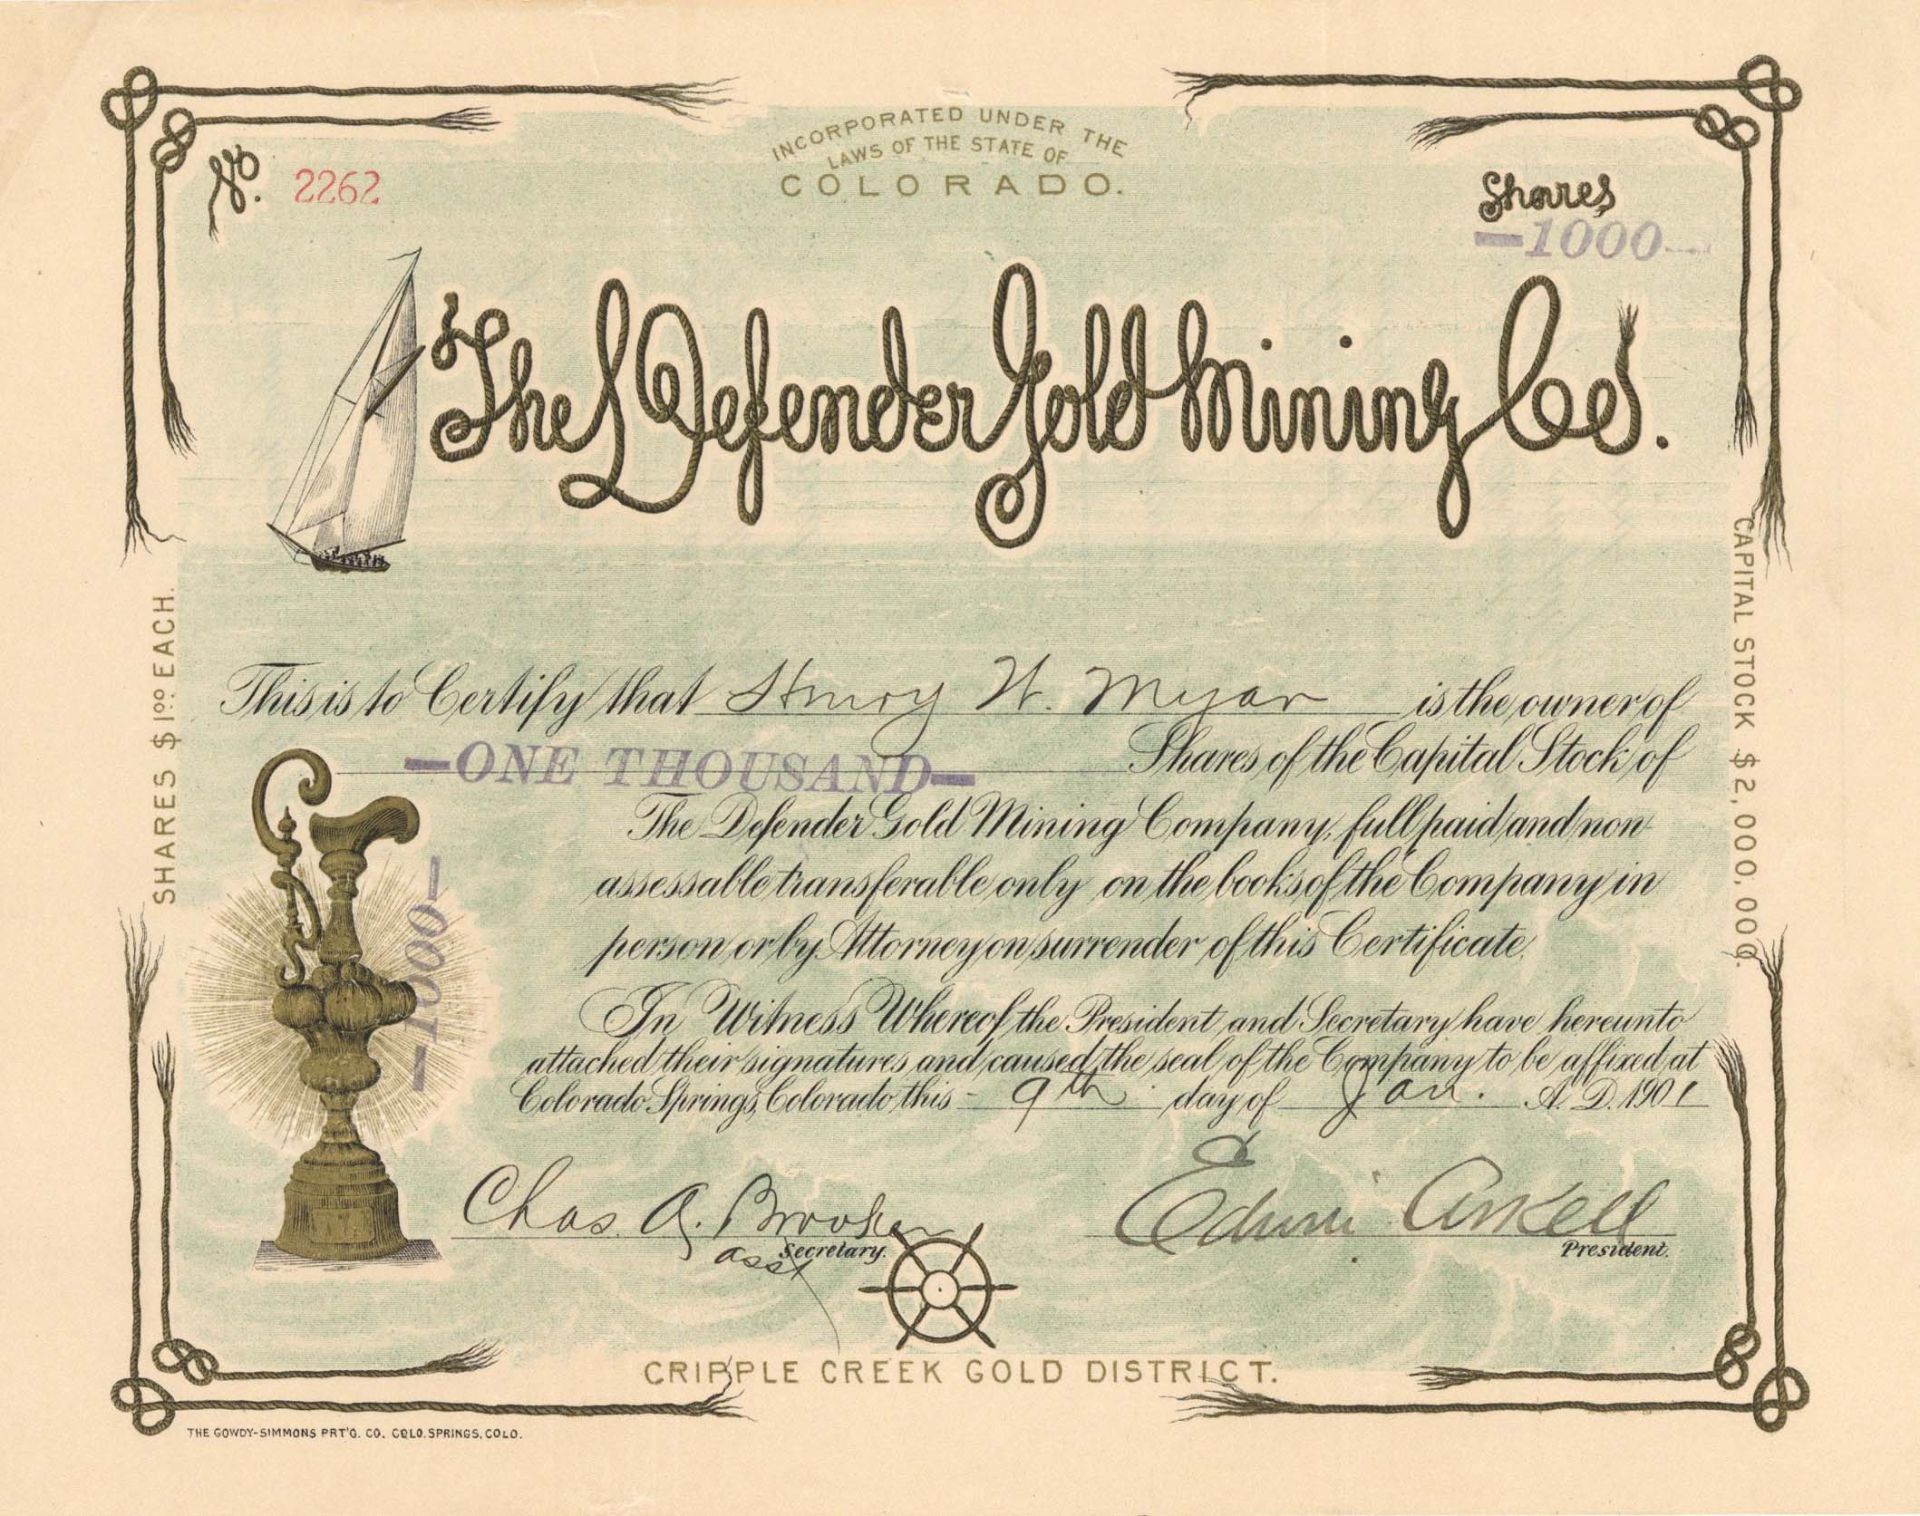 INCORPORATED UNDER THE
LAWS OF THE STATE OF
COLORADO.
No. 2262
Shares
—1000—
The Defender Gold Mining Co.
SHARES $1.00 EACH.
CAPITAL STOCK $2,000,000.
This is to Certify that Henry W. Myar is the owner of
—ONE THOUSAND— Shares of the Capital Stock of
The Defender Gold Mining Company, full paid and non
assessable transferable only on the books of the Company in
person or by Attorney on surrender of this Certificate.
—1000—
In Witness Whereof the President and Secretary have hereunto
attached their signatures and caused the seal of the Company to be affixed at
Colorado Springs, Colorado this 9th day of Jan. A.D. 1901
Chas. A. Brooker Edwin Arkell
asst Secretary. President.
CRIPPLE CREEK GOLD DISTRICT.
THE GOWDY-SIMMONS PRT'G. CO. COLO. SPRINGS, COLO.